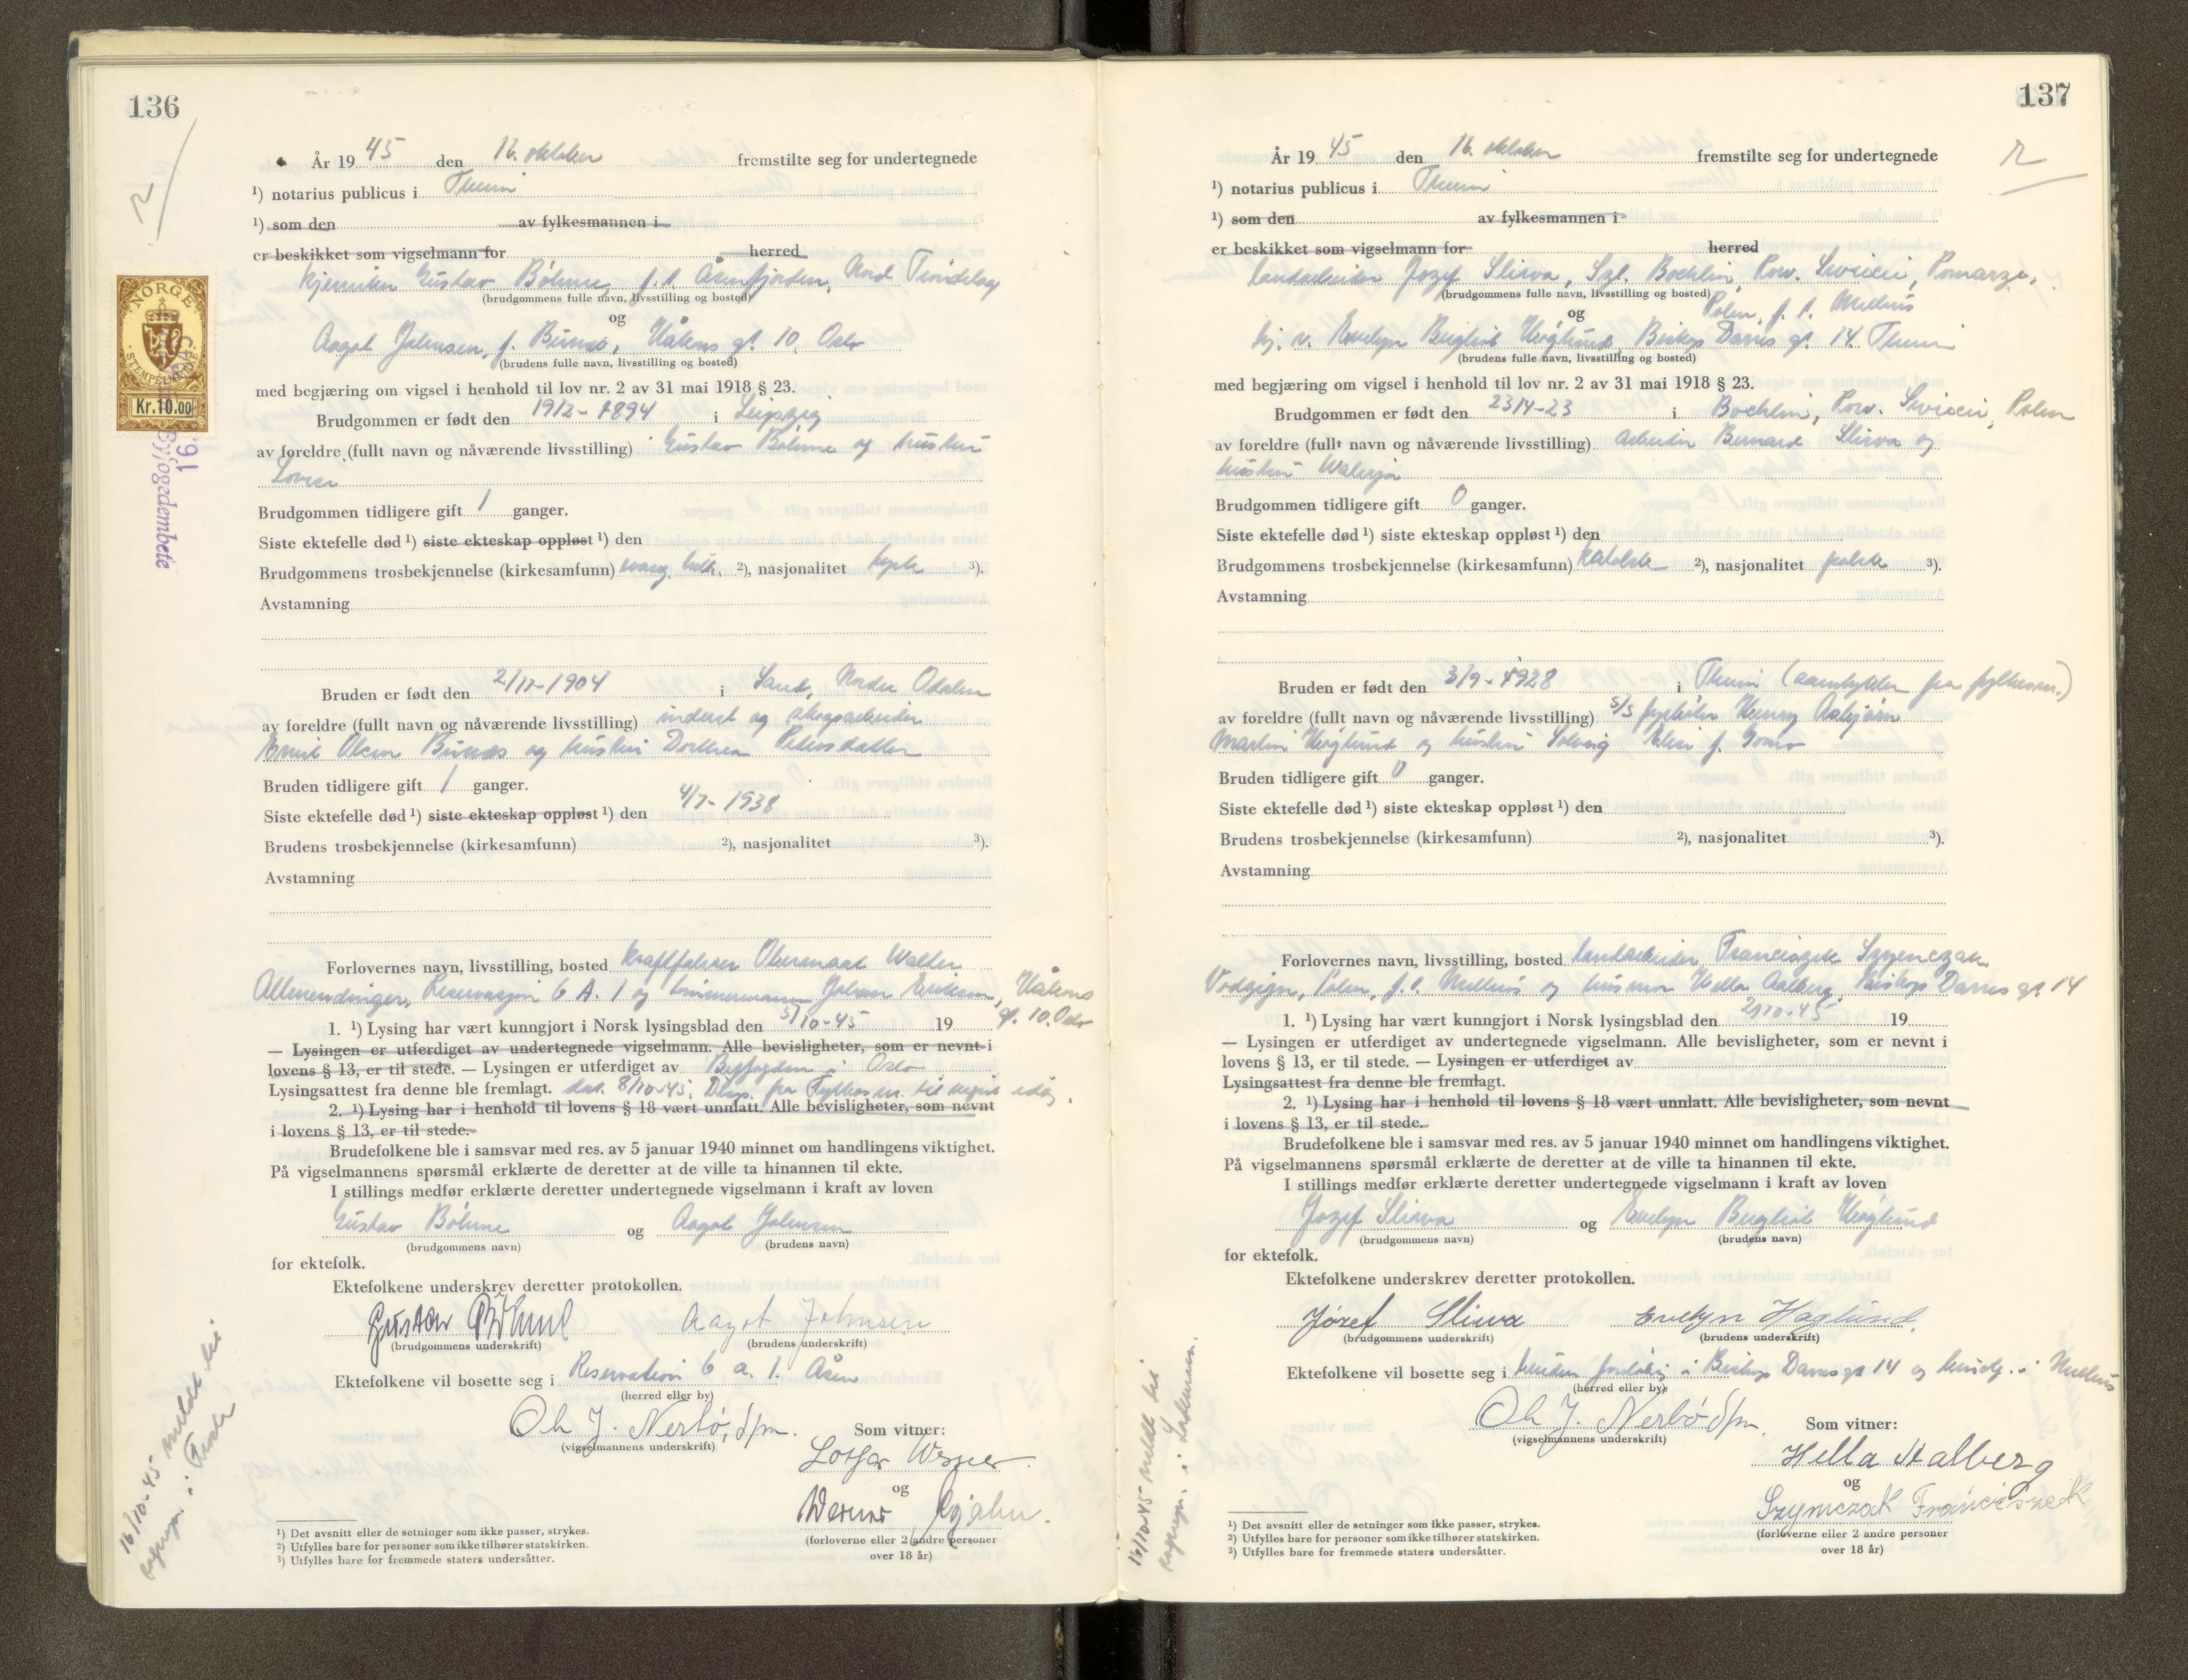 136
År 19 45 den 16. oktober fremstilte seg for undertegnede
¹) notarius publicus i Th.heim
¹) som den av fylkesmannen i
er beskikket som vigselmann for herred
Gustav Böhme, f. t. Åsenfjorden, Nord Trøndelag
(brudgommens fulle navn, livsstilling og bosted)
og
Aagot Johnsen, f. Bunes, Håkons gt. 10, Oslo
(brudens fulle navn, livsstilling og bosted)
med begjæring om vigsel i henhold til lov nr. 2 av 31 mai 1918 § 23.
Brudgommen er født den 19/2-1894 i Leipzig
av foreldre (fullt navn og nåværende livsstilling) Gustav Böhme og hustru
Brudgommen tidligere gift 1 ganger.
Siste ektefelle død ¹) siste ekteskap oppløst ¹) den
Brudgommens trosbekjennelse (kirkesamfunn) evang. luth. ²), nasjonalitet tysk ³).
Avstamning
Bruden er født den 2/11-1904 i Sand, Nordre Odalen
av foreldre (fullt navn og nåværende livsstilling) inderst og skogsarbeider
Emil Olsen Bunes og hustru Dorthea Petersdatter
Bruden tidligere gift 1 ganger.
Siste ektefelle død ¹) siste ekteskap oppløst ¹) den 4/7-1938
Brudens trosbekjennelse (kirkesamfunn) ²), nasjonalitet ³).
Avstamning
Forlovernes navn, livsstilling, bosted Kraftfahrer Obermaat Walter
Allmendinger, Reservasjon 6 A. 1 og tømmermann Johan Eriksen, Håkons
gt. 10. Oslo
1. ¹) Lysing har vært kunngjort i Norsk lysingsblad den 5/10-45 19
— Lysingen er utferdiget av undertegnede vigselmann. Alle bevisligheter, som er nevnt i
lovens § 13, er til stede. — Lysingen er utferdiget av Byfogden i Oslo
Lysingsattest fra denne ble fremlagt. dat. 8/10-45. Disp. fra Fylkesm. til vigsel idag.
2. ¹) Lysing har i henhold til lovens § 18 vært unnlatt. Alle bevisligheter, som nevnt
i lovens § 13, er til stede.
Brudefolkene ble i samsvar med res. av 5 januar 1940 minnet om handlingens viktighet.
På vigselmannens spørsmål erklærte de deretter at de ville ta hinannen til ekte.
I stillings medfør erklærte deretter undertegnede vigselmann i kraft av loven
Gustav Böhme og Aagot Johnsen
(brudgommens navn) (brudens navn)
for ektefolk.
Ektefolkene underskrev deretter protokollen.
Gustav Böhme Aagot Johnsen
(brudgommens underskrift) (brudens underskrift)
Ektefolkene vil bosette seg i Reservation 6 a. 1. Åsen
(herred eller by)
Ole J. Nerbö, s/m.
(vigselmannens underskrift)
Som vitner:
Lothar Werner
og
Werner
(forloverne eller 2 andre personer
over 18 år)
¹) Det avsnitt eller de setninger som ikke passer, strykes.
²) Utfylles bare for personer som ikke tilhører statskirken.
³) Utfylles bare for fremmede staters undersåtter.
16/10-45 meldt til
NORGE
STEMPELMERKE
Kr.10.00
Byfogedembete
137
År 19 45 den 16. oktober fremstilte seg for undertegnede
¹) notarius publicus i Th.heim
¹) som den av fylkesmannen i
er beskikket som vigselmann for herred
landarbeider Jozef Sliwa, Szl. Bochlin, Pow. Swiecie, Pomorze,
(brudgommens fulle navn, livsstilling og bosted)
Polen, f. t. Melhus
og
Evelyn Bergliot Høglund, Biskop Darres gt. 14. Th.heim
(brudens fulle navn, livsstilling og bosted)
med begjæring om vigsel i henhold til lov nr. 2 av 31 mai 1918 § 23.
Brudgommen er født den 23/4-23 i Bochlin, Pow. Swiecie, Polen
av foreldre (fullt navn og nåværende livsstilling) arbeider Bernard Sliwa og
hustru Walerja
Brudgommen tidligere gift 0 ganger.
Siste ektefelle død ¹) siste ekteskap oppløst ¹) den
Brudgommens trosbekjennelse (kirkesamfunn) katolsk ²), nasjonalitet polsk ³).
Avstamning
Bruden er født den 3/9-1928 i Th.heim (samtykke fra fylkesm.)
av foreldre (fullt navn og nåværende livsstilling) s/s fyrbøter Henry Asbjørn
Martin Høglund og hustru Solveig Elise f.
Bruden tidligere gift 0 ganger.
Siste ektefelle død ¹) siste ekteskap oppløst ¹) den
Brudens trosbekjennelse (kirkesamfunn) ²), nasjonalitet ³).
Avstamning
Forlovernes navn, livsstilling, bosted landarbeider Franciszek Szymczak,
Polen, f. t. Melhus og husmor Hella Aalberg, Biskop Darres gt. 14
1. ¹) Lysing har vært kunngjort i Norsk lysingsblad den 2/10-45 19
— Lysingen er utferdiget av undertegnede vigselmann. Alle bevisligheter, som er nevnt i
lovens § 13, er til stede. — Lysingen er utferdiget av
Lysingsattest fra denne ble fremlagt.
2. ¹) Lysing har i henhold til lovens § 18 vært unnlatt. Alle bevisligheter, som nevnt
i lovens § 13, er til stede.
Brudefolkene ble i samsvar med res. av 5 januar 1940 minnet om handlingens viktighet.
På vigselmannens spørsmål erklærte de deretter at de ville ta hinannen til ekte.
I stillings medfør erklærte deretter undertegnede vigselmann i kraft av loven
Jozef Sliwa og Evelyn Bergliot Høglund
(brudgommens navn) (brudens navn)
for ektefolk.
Ektefolkene underskrev deretter protokollen.
Józef Sliwa Evelyn Høglund.
(brudgommens underskrift) (brudens underskrift)
Ektefolkene vil bosette seg i hustru foreløbig i Biskop Darres gt 14 og brudg. i Melhus
(herred eller by)
Ole J. Nerbö s/m.
(vigselmannens underskrift)
Som vitner:
Hella Aalberg
og
Szymczak Franciszek
(forloverne eller 2 andre personer
over 18 år)
¹) Det avsnitt eller de setninger som ikke passer, strykes.
²) Utfylles bare for personer som ikke tilhører statskirken.
³) Utfylles bare for fremmede staters undersåtter.
16/10 45 meldt til